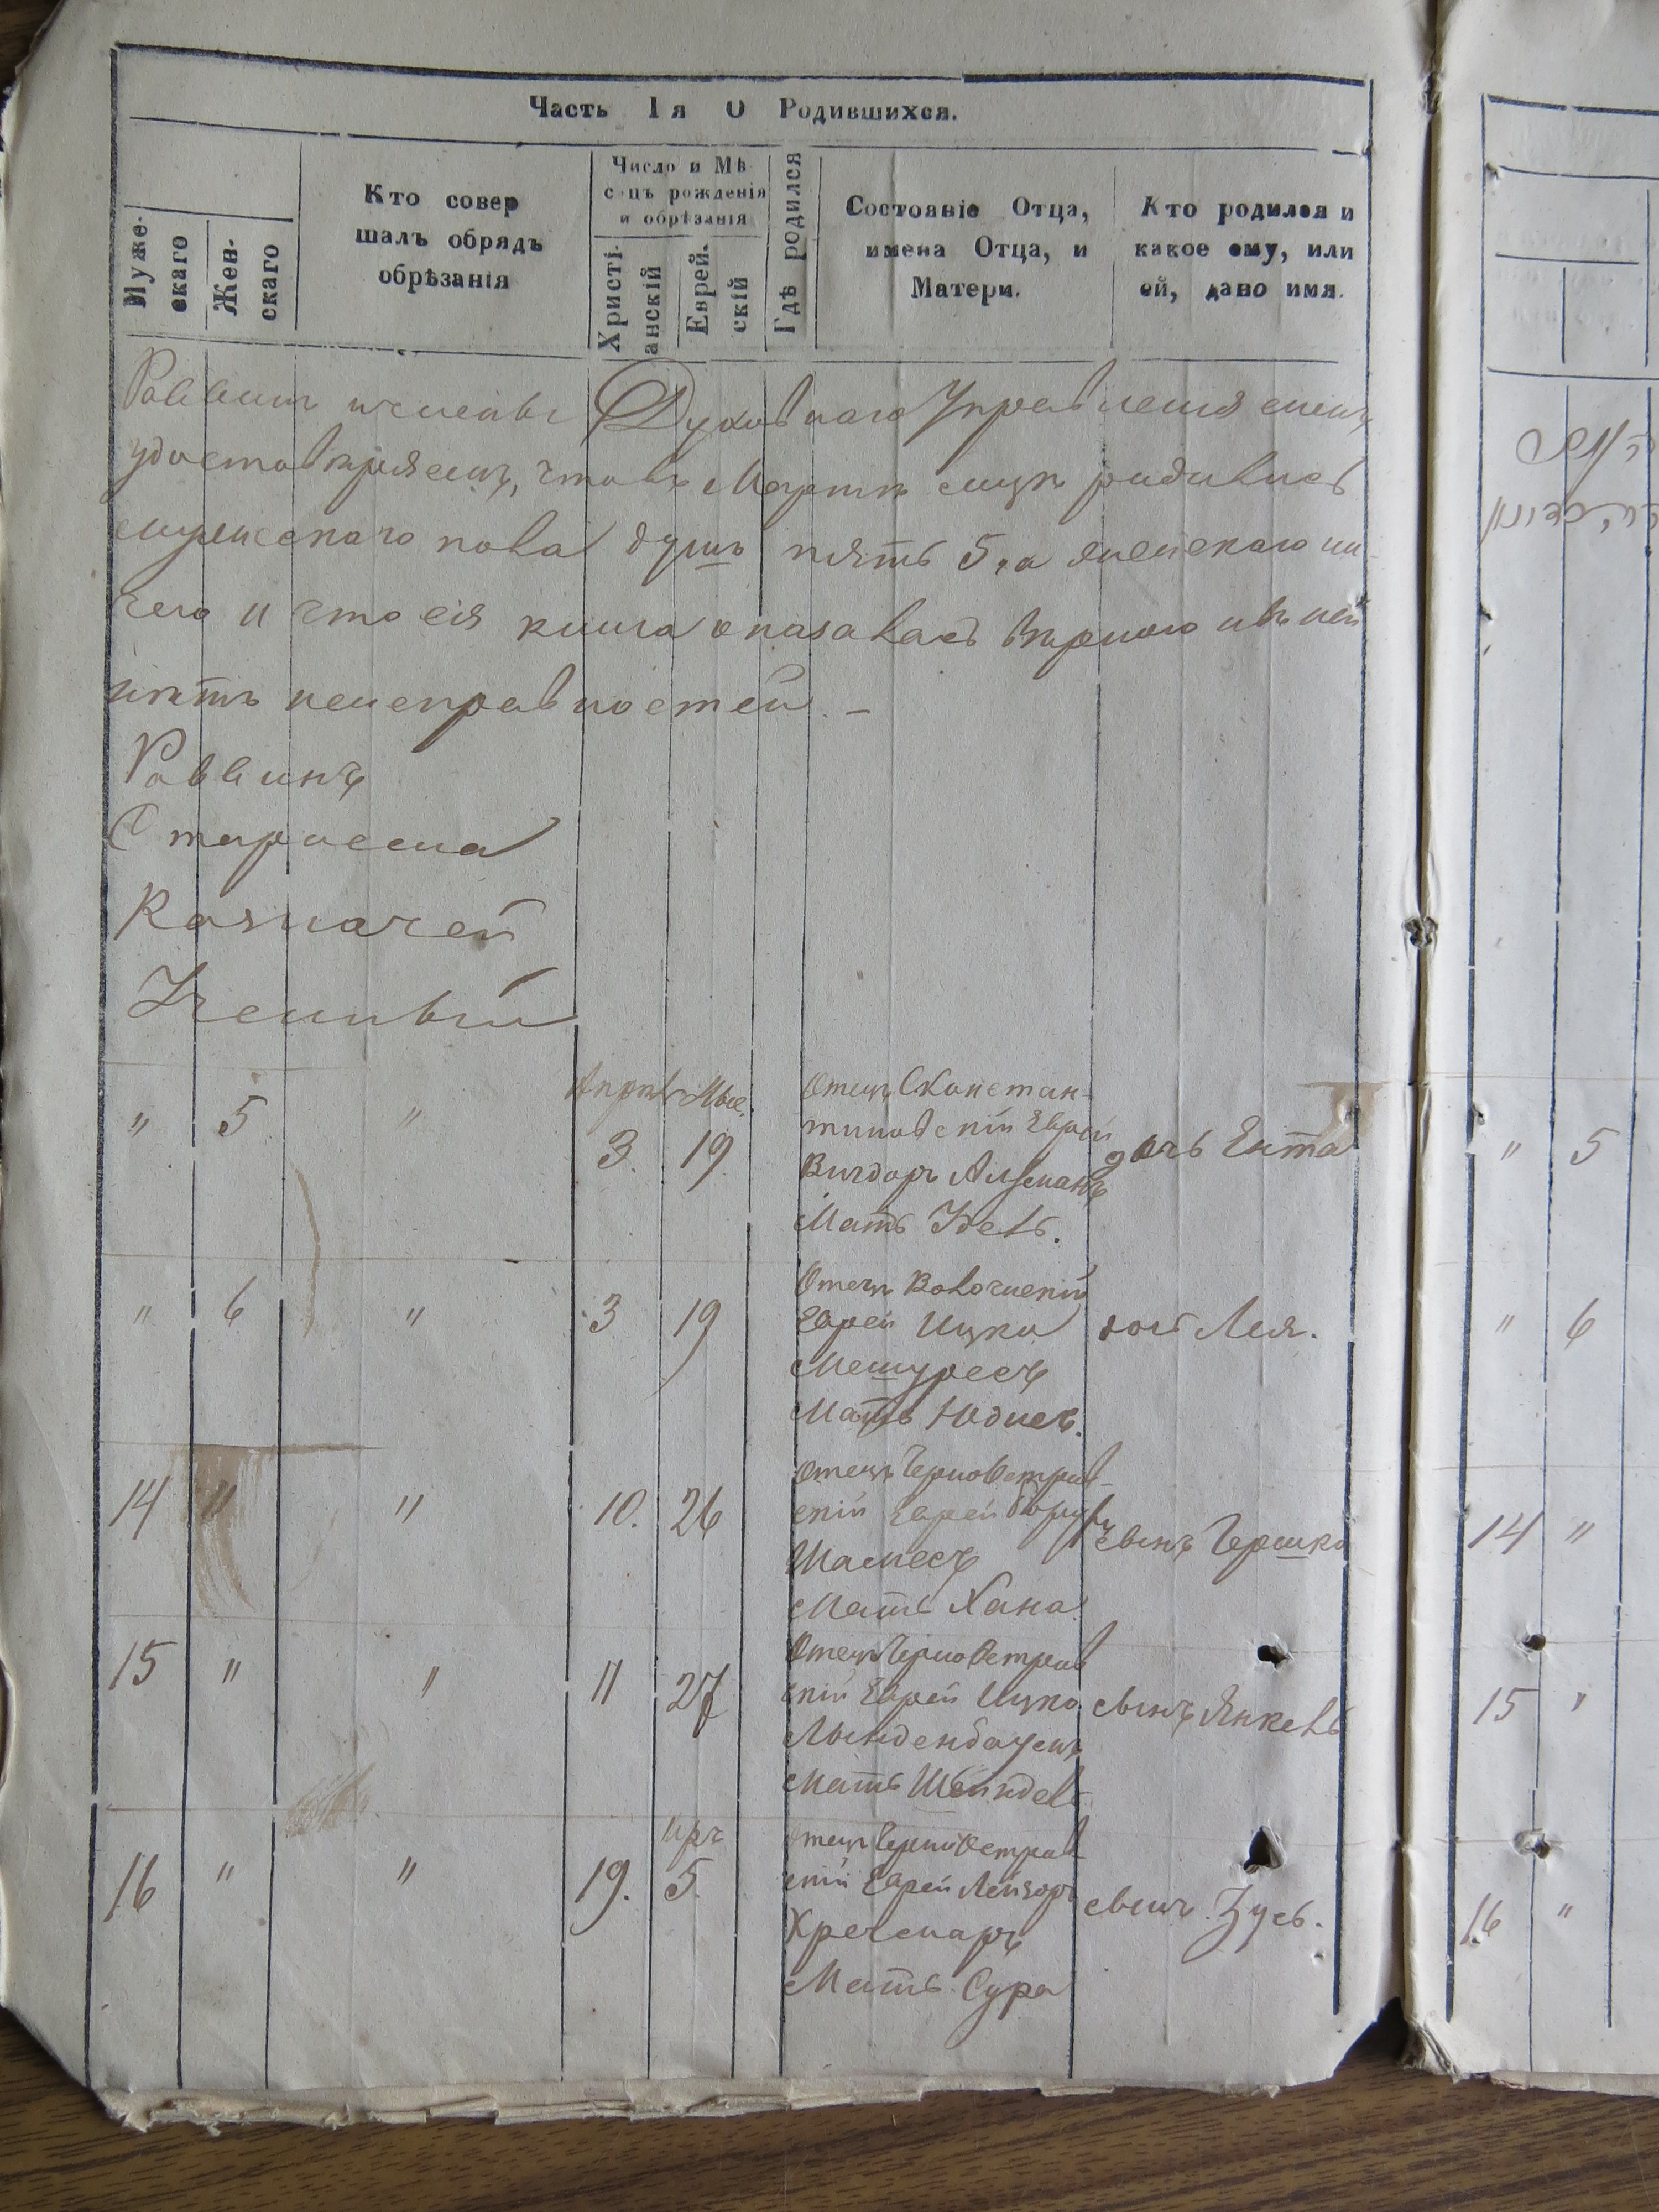 Часть 1я О Родившихся.
Муже-
скаго
Жен-
скаго
Кто совер
шалъ обрядъ
обрѣзанія
Число и Мѣ
сяцъ рожденія
и обрѣзанія
Христі-
анскій
Еврей-
скій
Гдѣ родился
Состояніе Отца,
имена Отца, и
Матери.
Кто родился и
какое ему, или
ей, дано имя.
Раввинъ и члены Духовнаго Управления симъ
удостовѣряемъ, что въ Мартѣ сицѣ родились
мужескаго пола душъ пять 5, а женскаго ни-
чего и что сія книга оказалась вѣрною и въ ней
нѣтъ неисправностей. –
Раввинъ
Староста
Казначей
Ученный
" 5 " Апрѣль 3. 19.
Отецъ Сконстан-
тиновскій Еврей
Вигдоръ
Мать Удель.
дочь Ента
" 6 " 3 19
Отецъ Волочиский
Еврей Ицко
Мешуресъ
Мать Юдисъ.
дочь Лея.
14 " " 10. 26
Отецъ Черноостров-
скій Еврей Борухъ
Шамесъ
Мать Хана
сынъ Гершко
15 " " 11 27
Отецъ Черноостров
скій Еврей Ицко
Лынденбаумъ
Мать Шейндель
сынъ Янкель
16 " " 19. Иръ 5.
Отецъ Черноостров
скій Еврей Лейзоръ
Кречмаръ
Мать Сура
сынъ Зусь.
" 5
" 6
14 "
15 "
16 "